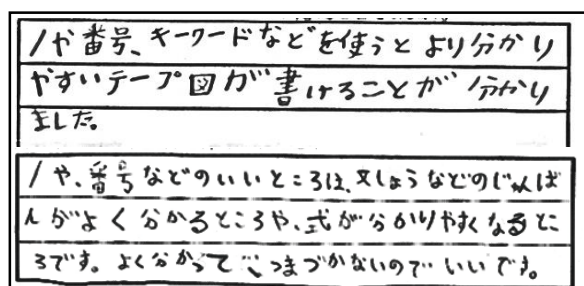 /や番号、キーワードなどを使うとより分かり
やすいテープ図が書けることが分かり
ました。
/や、番号などのいいところは、文しょうなどのじゅんば
んがよく分かるところや、式が分かりやすくなるとこ
ろです。よく分かって、つまづかないのでいいです。